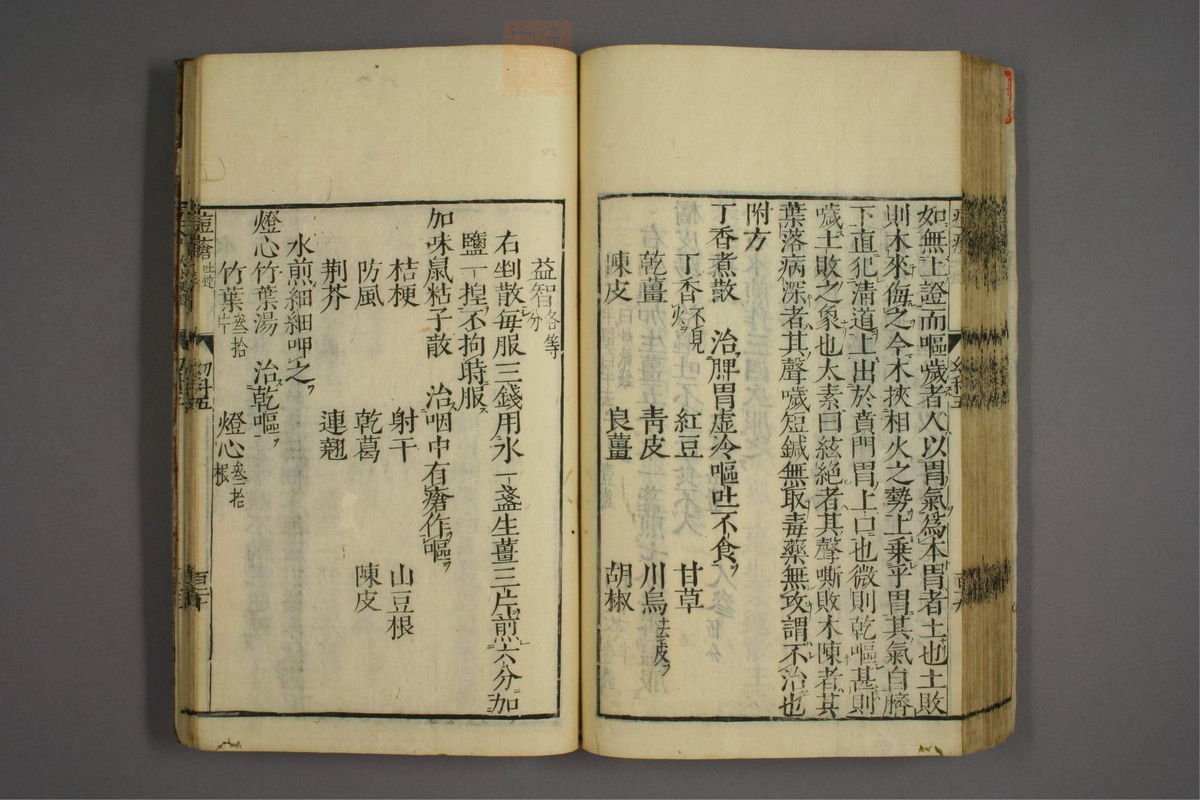 如無上證而嘔噦者人以胃氣爲本胃者土也土敗
則木來侮之今木挾相火之勢上乘乎胃其氣自臍
下直犯清道上出於賁門胃上口也微則乾嘔甚則
噦土敗之象也太素曰絃絶者其聲嘶敗木陳者其
葉落病深者其聲噦短鍼無取毒藥無攻謂不治也
附方
丁香煮散 治脾胃虛冷嘔吐不食
丁香不見火 紅豆 甘草
乾薑 靑皮 川烏去皮
陳皮 良薑 胡椒
益智各等分
右剉散每服三錢用水一盞生薑三片煎六分加
鹽一捏不拘時服
加味鼠粘子散 治咽中有瘡作嘔
桔梗 射干 山豆根
防風 乾葛 陳皮
荆芥 連翹
水煎細細呷之
燈心竹葉湯 治乾嘔
竹葉叁拾片 燈心叁拾根
痘瘡 吐逆